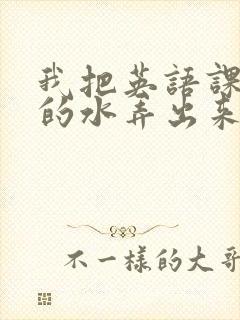 我把英語課
的水弄出來
不一樣的大哥